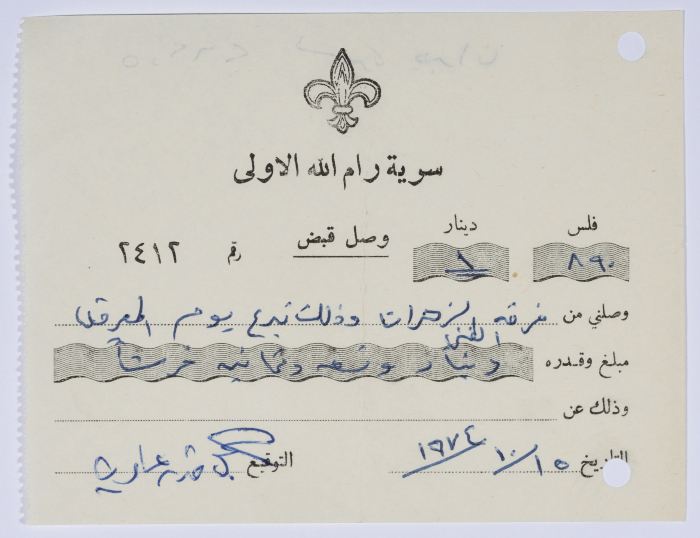 سرية رام الله الاولى
فلس دينار
وصل قبض رقم ٢٤١٢
٨٩٠ ١
وصلني من فرقه الزهرات وذلك تبرع يوم
مبلغ وقدره دينار وتسعه وثمانيه قرشاً
وذلك عن
التاريخ ١٥/١٠/١٩٧٤ التوقيع